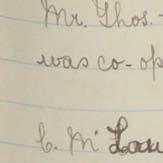 Mr. Thos.
was co-op
C. M Law